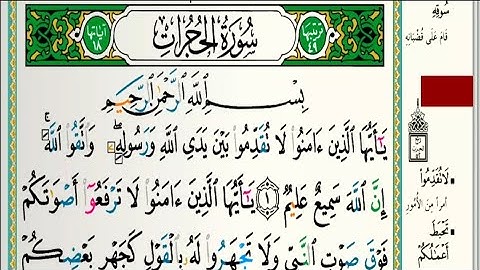 ترتيبها ٤٩ سُورَةُ الحُجُرَات آياتها ١٨
بِسْمِ اللَّهِ الرَّحْمَٰنِ الرَّحِيمِ
يَٰٓأَيُّهَا الَّذِينَ ءَامَنُوا لَا تُقَدِّمُوا بَيْنَ يَدَىِ اللَّهِ وَرَسُولِهِۦ وَٱتَّقُوا اللَّهَ
إِنَّ اللَّهَ سَمِيعٌ عَلِيمٌ ١ يَٰٓأَيُّهَا الَّذِينَ ءَامَنُوا لَا تَرْفَعُوٓا أَصْوَٰتَكُمْ
فَوْقَ صَوْتِ النَّبِىِّ وَلَا تَجْهَرُوا لَهُۥ بِالْقَوْلِ كَجَهْرِ بَعْضِكُمْ
سُوقِهِ
قَامَ عَلَى قُضْبَانِهِ
لَا تُقَدِّمُوا
أمرًا مِنَ الأُمُورِ
تَحْبَطَ
أَعْمَٰلُكُمْ